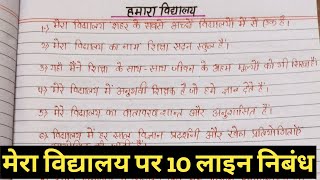 हमारा विद्यालय
1) मेरा विद्यालय शहर के सबसे अच्छे विद्यालयों में से एक है।
2) मेरे विद्यालय का नाम शिक्षा सदन स्कूल है।
3) यहाँ मैंने शिक्षा के साथ-साथ जीवन के अहम मूल्यों को भी सिखा है।
4) मेरे विद्यालय में अनुभवी शिक्षक हैं जो हमें ज्ञान देते हैं।
5) मेरे विद्यालय का वातावरण शान्त और अनुशासित है।
6) विद्यालय में हर साल विज्ञान प्रदर्शनी और खेल
मेरा विद्यालय पर 10 लाइन निबंध